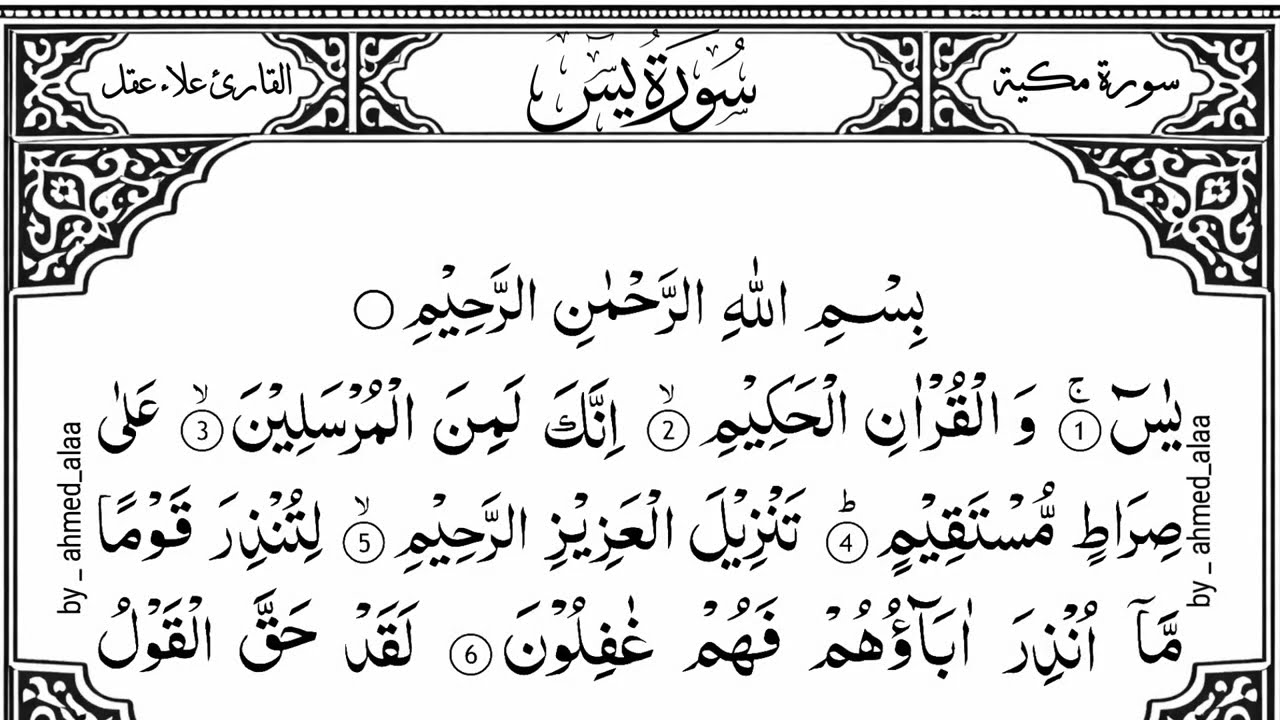 سورة مكية
سُورَةُ يسٓ
القارئ علاء عقل
بِسْمِ اللّٰهِ الرَّحْمٰنِ الرَّحِيْمِ ○
يٰسٓ ۚ ① وَ الْقُرْاٰنِ الْحَكِيْمِ ۙ ② اِنَّكَ لَمِنَ الْمُرْسَلِيْنَ ۙ ③ عَلٰى
صِرَاطٍ مُّسْتَقِيْمٍ ؕ ④ تَنْزِيْلَ الْعَزِيْزِ الرَّحِيْمِ ۙ ⑤ لِتُنْذِرَ قَوْمًا
مَّاۤ اُنْذِرَ اٰبَآؤُهُمْ فَهُمْ غٰفِلُوْنَ ⑥ لَقَدْ حَقَّ الْقَوْلُ
by _ ahmed_alaa
by _ ahmed_alaa